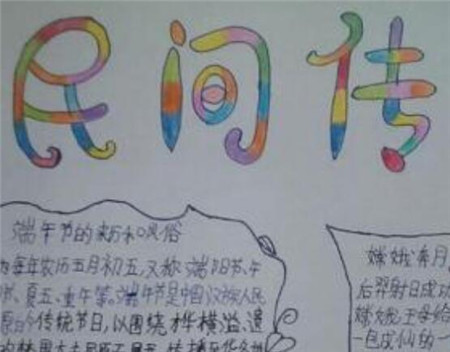 民间传
端午节的来历和风俗
为每年农历五月初五,又称端阳节、午
节、夏五、重午等。端午节是中国汉族人民
的传统节日,以围绕才华横溢、遗
嫦娥奔月
后羿射日成功
嫦娥,王母给
一包成仙的